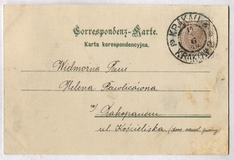 Correspondenz-Karte.
Karta korespondencyjna.
KRAKÓW
KRAKAU
Wielmożna Pani
Helena Pawlicówna
w Zakopanem
ul. Kościeliska